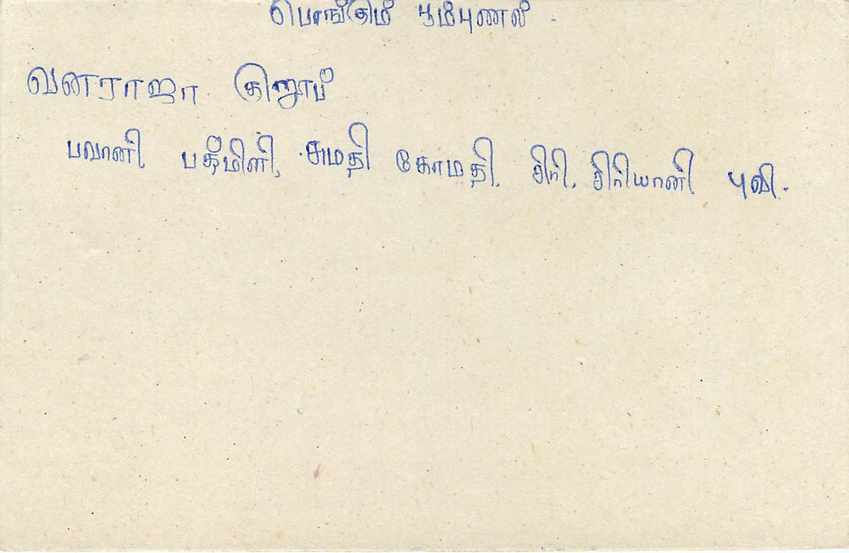 பொங்கும் பூம்புனல்
வனராஜா குரூப்
பவானி, பத்மினி, சுமதி கோமதி, சிறி, சிறியானி புவி.